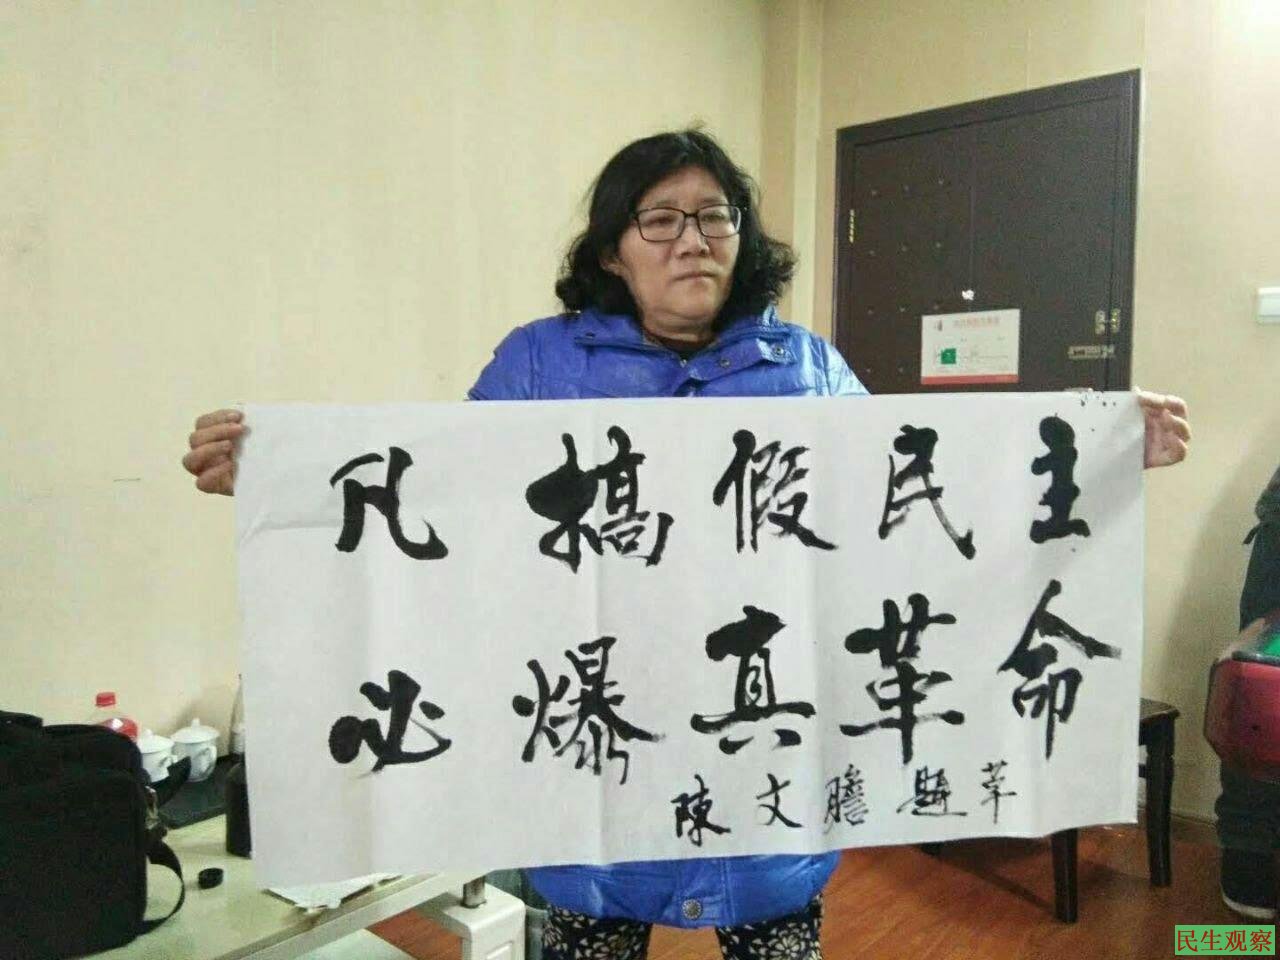 凡搞假民主
必爆真革命
陳文膽題
民生观察